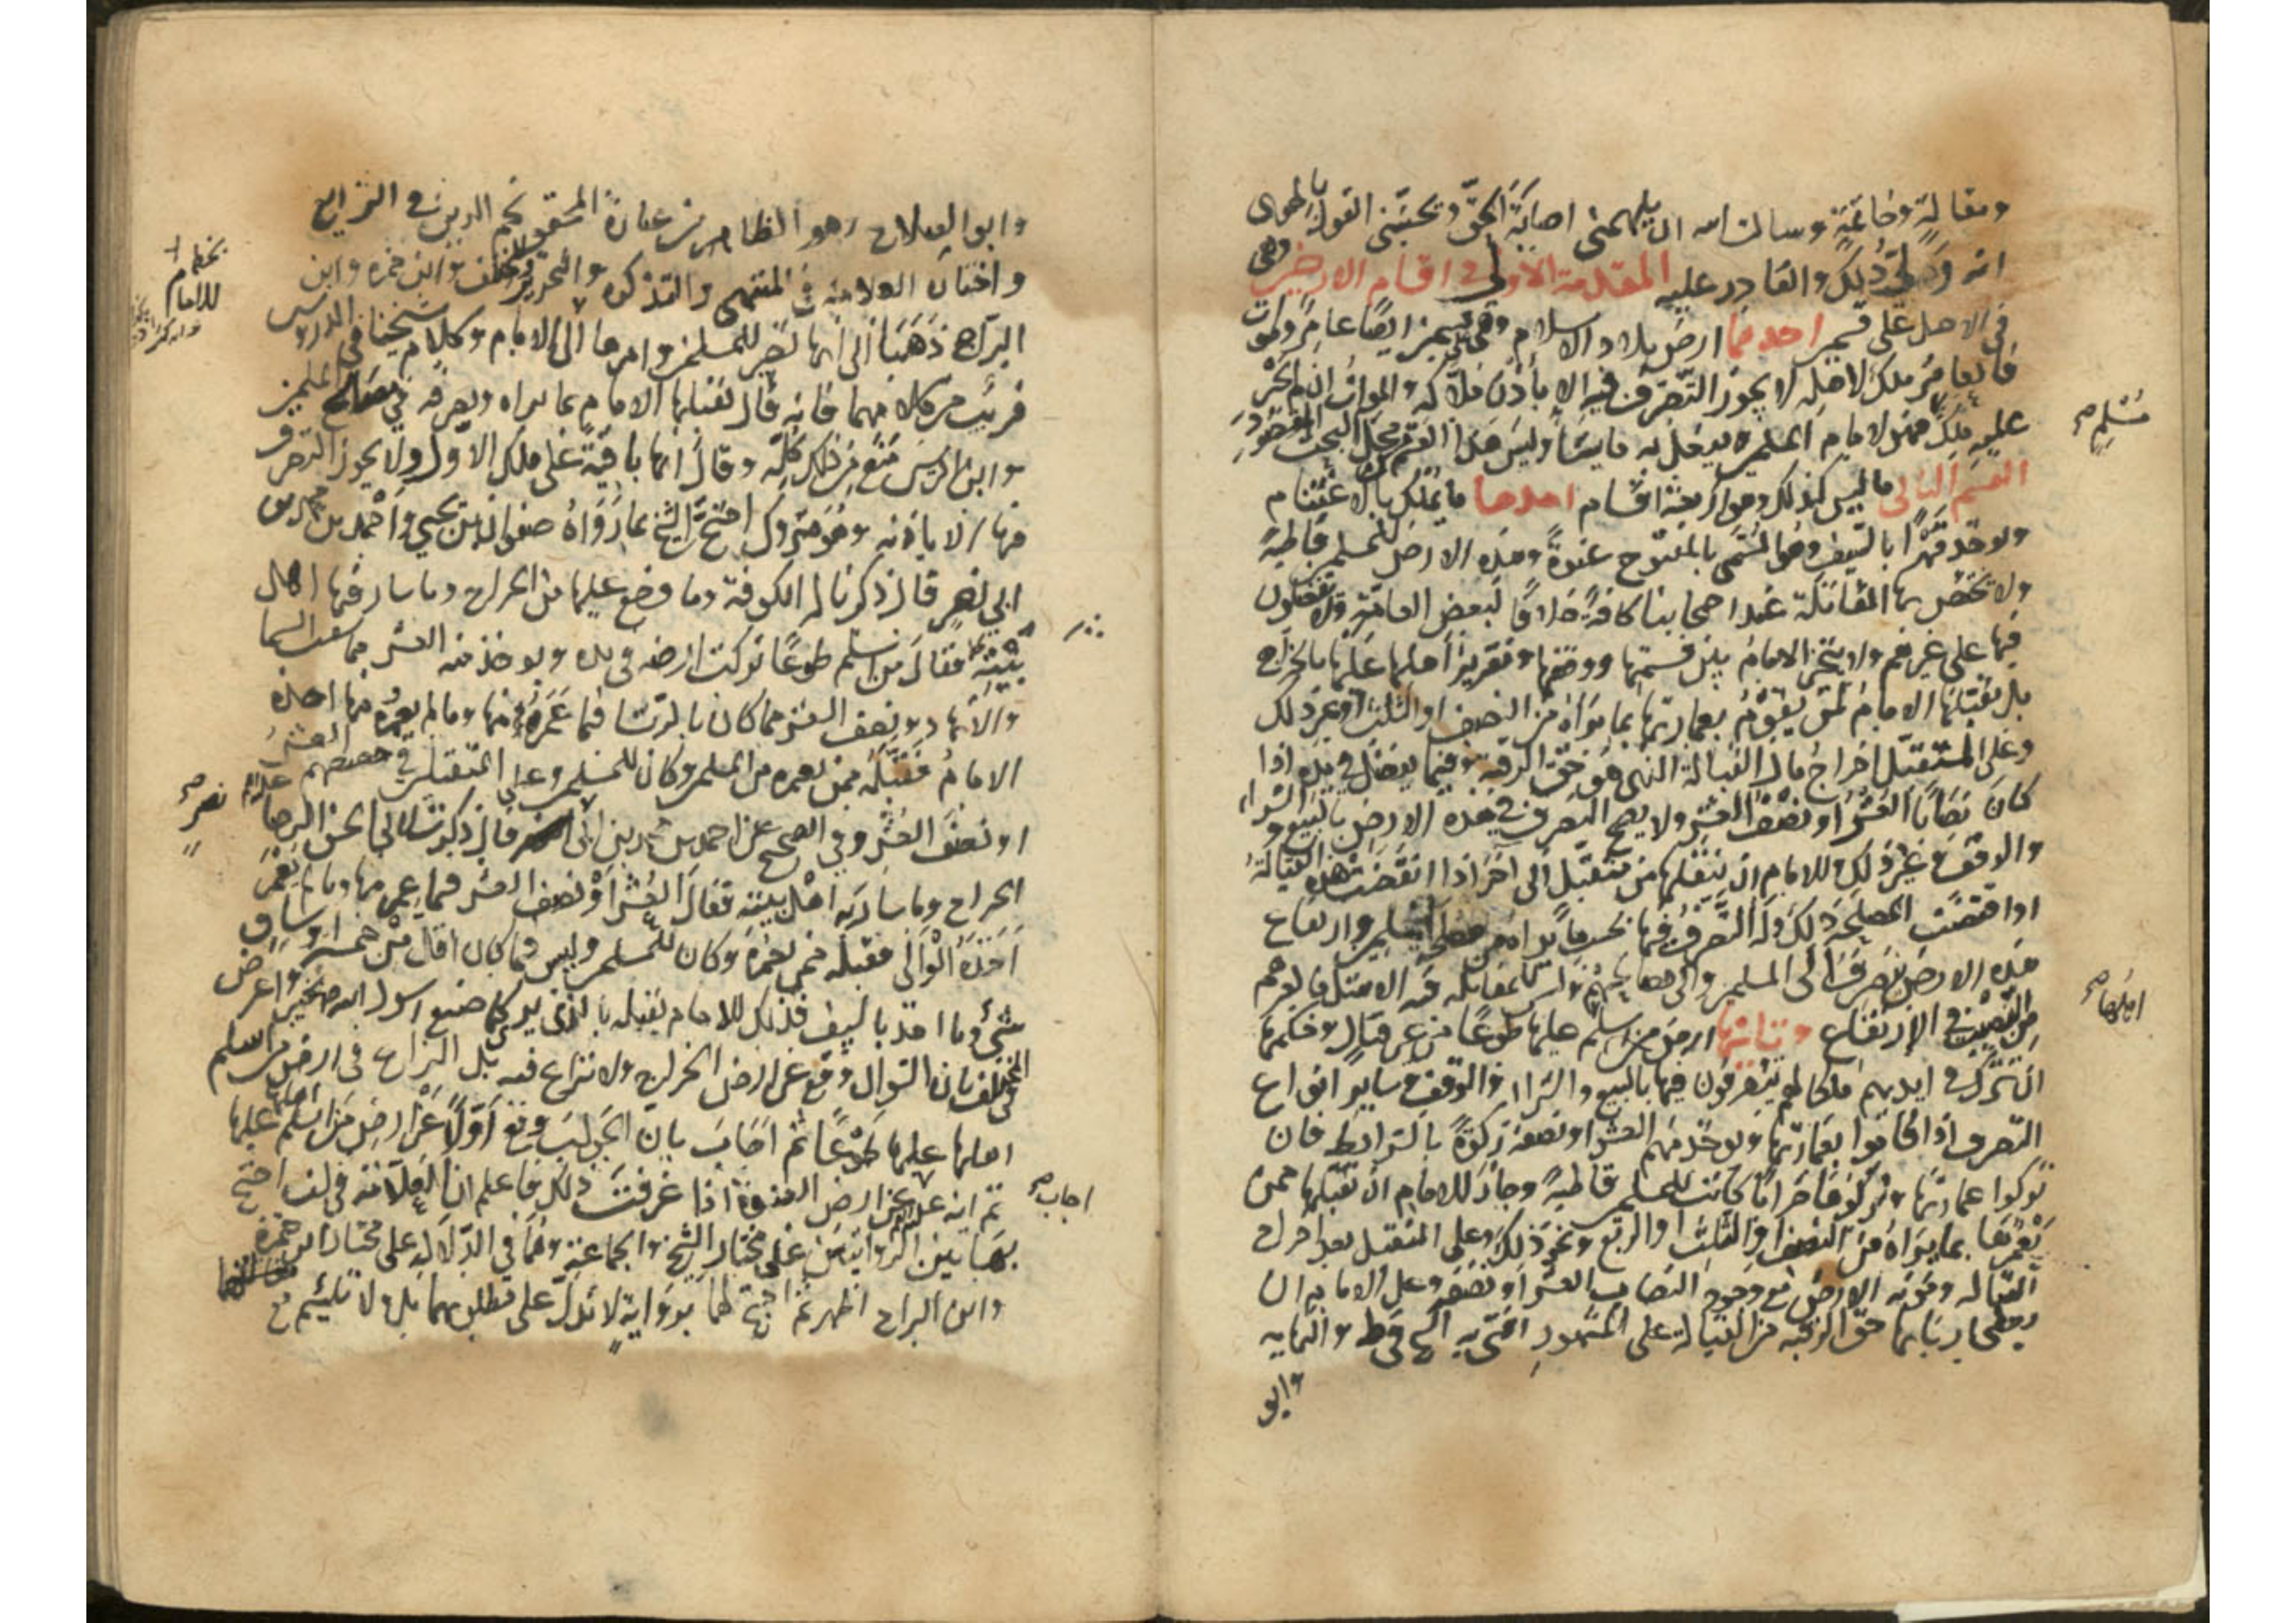 ومقالة وخاتمة وسالت الله ان يلهمني اصابة الحق وتجنبني القول بالهوى
انه ولي ذلك والقادر عليه المقدمة الاولى في اقسام الارضين وهي
في الاصل على قسمين احدهما ارض بلاد الاسلام وهي على قسمين ايضا عامر وموات
فالعامر ملك لاهله لا يجوز التصرف فيه الا باذن ملاكه والموات ان لم يجر
عليه ملك فهو لامام المسلمين يفعل به ما يشاء وليس هذا القسم محل البحث المقصود
القسم الثاني ما ليس كذلك وهو اربعة اقسام احدها ما يملك بالاغتنام
ويوخذ قهرا بالسيف وهو المسمى بالمفتوح عنوة وهذه الارض للمسلمين قاطبة
ولا تختص بها المقاتلة عند اصحابنا كافة خلافا لبعض العامة ولا يفضلون
فيها على غيرهم ولا يتخير الامام بين قسمتها ووقفها وتقرير اهلها عليها بالخراج
بل يقبلها الامام لمن يقوم بعمارتها بما يراه من النصف او الثلث او غير ذلك
وعلى المتقبل اخراج مال القبالة الذي هو حق الرقبة وفيما يفضل في يده اذا
كان نصابا العشر او نصف العشر ولا يصح التصرف في هذه الارض بالبيع والشراء
والوقف وغير ذلك وللامام ان ينقلها من متقبل الى اخر اذا انقضت مدة القبالة
او اقتضت المصلحة ذلك وله التصرف فيها بحسب ما يراه من مصلحة المسلمين وارتفاع
هذه الارض يصرف الى المسلمين والى مصالحهم وليس للمقاتلة فيه الا مثل ما لغيرهم
من النصيب في الارتفاع وثانيها ارض من اسلم عليها طوعا من غير قتال وحكمها
ان تترك في ايديهم ملكا لهم يتصرفون فيها بالبيع والشراء والوقف وساير انواع
التصرف اذا قاموا بعمارتها ويوخذ منهم العشر او نصفه زكوة بالشرايط فان
تركوا عمارتها وتركوها خرابا كانت للمسلمين قاطبة وجاز للامام ان تقبلها ممن
يعمرها بما يراه من النصف او الثلث او الربع ونحو ذلك وعلى المتقبل بعد اخراج
القبالة ومؤنة الارض مع وجود النصاب العشر او نصفه وعلى الامام ان
يعطي اربابها حق الرقبة من القبالة على المشهور افتى به الشيخ في المبسوط والنهاية
وابو
مسلم صح
اهلها صح
وابو الصلاح وهو الظاهر من عبارة المحقق نجم الدين في الشرايع
واختيار العلامة في المنتهى والتذكرة والتحرير والمختلف وابن حمزة وابن
البراج ذهبا الى انها تصير للمسلمين وامرها الى الامام وكلام شيخنا في الدروس
قريب من كلامهما فانه قال يقبلها الامام بما يراه ويصرفه في مصالح المسلمين
وابن ادريس منع من ذلك كله وقال انها باقية على ملك الاول ولا يجوز التصرف
فيها الا باذنه وهو متروك احتج الشيخ بما رواه صفوان بن يحيى واحمد بن محمد بن
ابي نصر قال ذكرنا له الكوفة وما وضع عليها من الخراج وما سار فيها اهل
بيته فقال من اسلم طوعا تركت ارضه في يده ويوخذ منه العشر مما سقت السما
والانهار ونصف العشر مما كان بالرشا فيما عمروه منها وما لم يعمره منها اخذه
الامام فقبله ممن يعمره من المسلمين وكان للمسلمين وعلى المتقبلين في حصصهم العشر
او نصف العشر وفي الصحيح عن احمد بن محمد بن ابي نصر قال ذكرت لابي الحسن الرضا عليه السلام
الخراج وما سار به اهل بيته فقال العشر او نصف العشر فيما عمر منها وما لم يعمر
اخذه الوالي فقبله ممن يعمره وكان للمسلمين وليس فيما كان اقل من خمسة اوساق
شيء وما اخذ بالسيف فذلك للامام يقبله بالذي يرى كما صنع رسول الله بخيبر واعترض
في المختلف بان السوال وقع عن ارض الخراج ولا نزاع فيه بل النزاع في ارض من اسلم
اهلها عليها طوعا ثم اجاب بان الجواب وقع اولا عن ارض من اسلم اهلها عليها
ثم انه عن ارض العنوة اذا عرفت ذلك فاعلم ان العلامة في لف احتج
بهاتين الروايتين على مختار الشيخ والجماعة وهما في الدلالة على مختار ابن حمزة
وابن البراج اظهر ثم احتج لهما برواية لا تدل على مطلوبهما بل ولا تلتئم مع
بخطه
للامام
نصر صح
اجاب صح